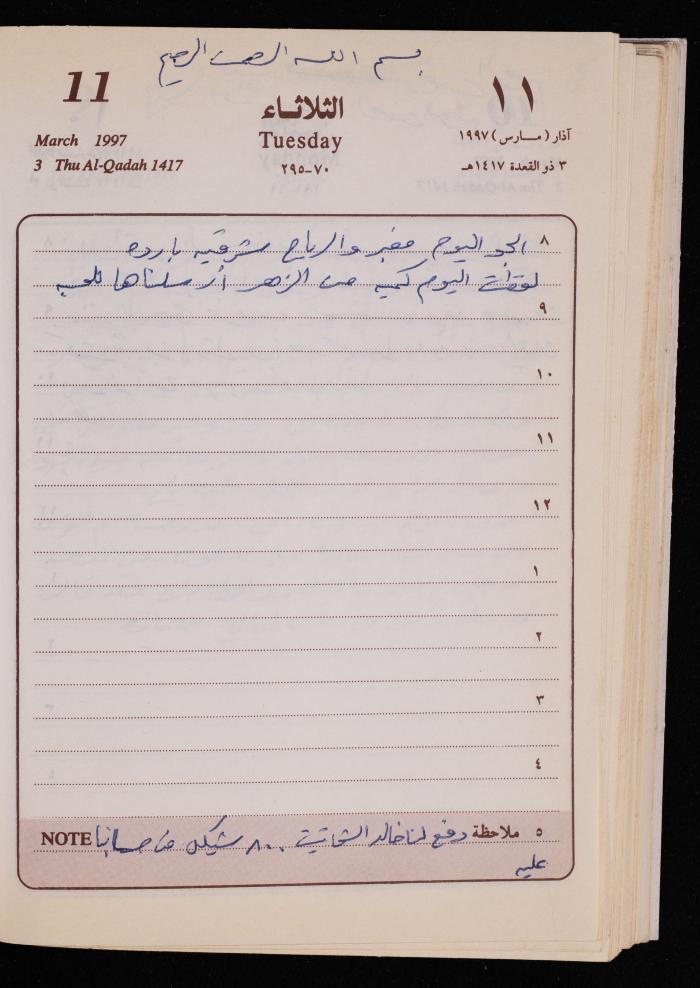 بسم الله الرحمن الرحيم
11
الثلاثاء
١١
March 1997
Tuesday
آذار (مارس) ١٩٩٧
3 Thu Al-Qadah 1417
٧٠-٢٩٥
٣ ذو القعدة ١٤١٧هـ
٨ الجو اليوم مغبر والرياح شرقيه بارده
لقطت اليوم كميه من الزهر أرسلناها
٩
١٠
١١
١٢
١
٢
٣
٤
٥ ملاحظة دفع لنا خالد ٨٠٠ شيكل من حسابنا NOTE
عليه